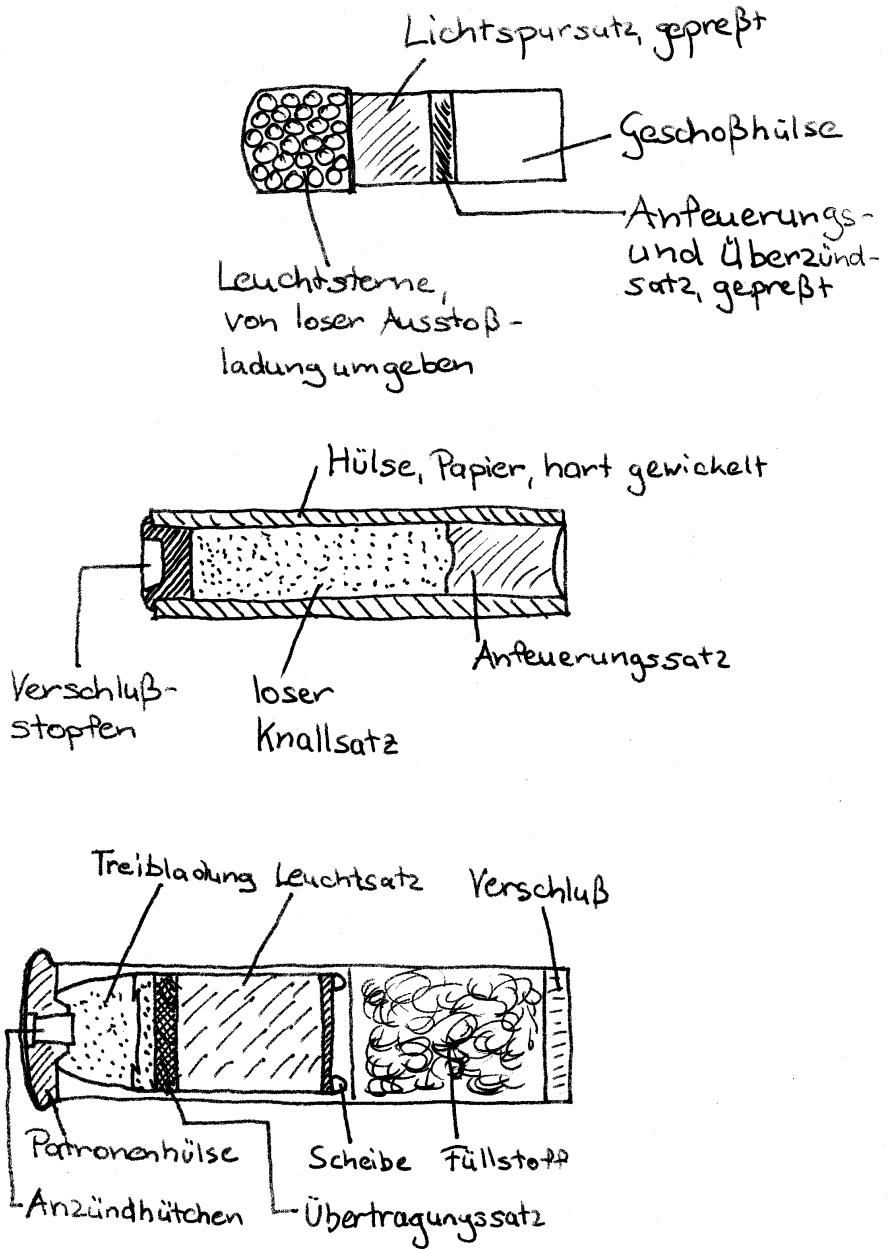 Lichtspursatz, gepreßt
Geschoßhülse
Anfeuerungs-
und Überzünd-
satz, gepreßt
Leuchtsterne,
von loser Ausstoß-
ladung umgeben
Hülse, Papier, hart gewickelt
Anfeuerungssatz
Verschluß-
stopfen
loser
Knallsatz
Treibladung
Leuchtsatz
Verschluß
Patronenhülse
Scheibe
Füllstoff
Anzündhütchen
Übertragungssatz